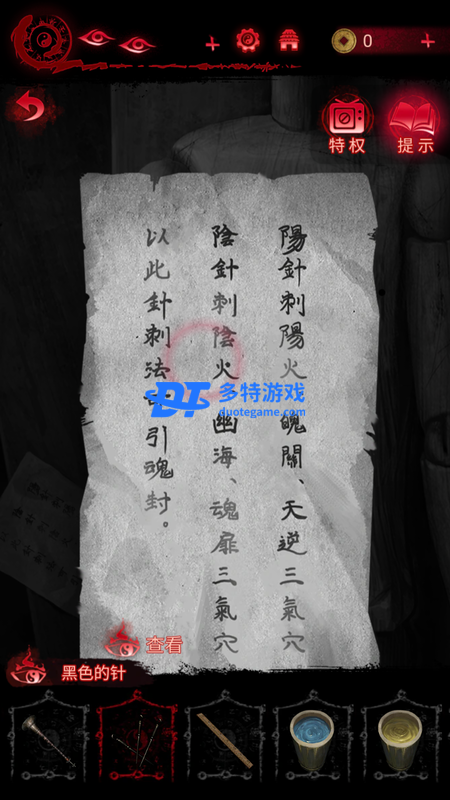 0
特权
提示
陽針刺陽火魄關、天逆三氣穴
陰針刺陰火幽海、魂扉三氣穴
以此針刺法引魂封。
DT 多特游戏
duotegame.com
查看
黑色的针